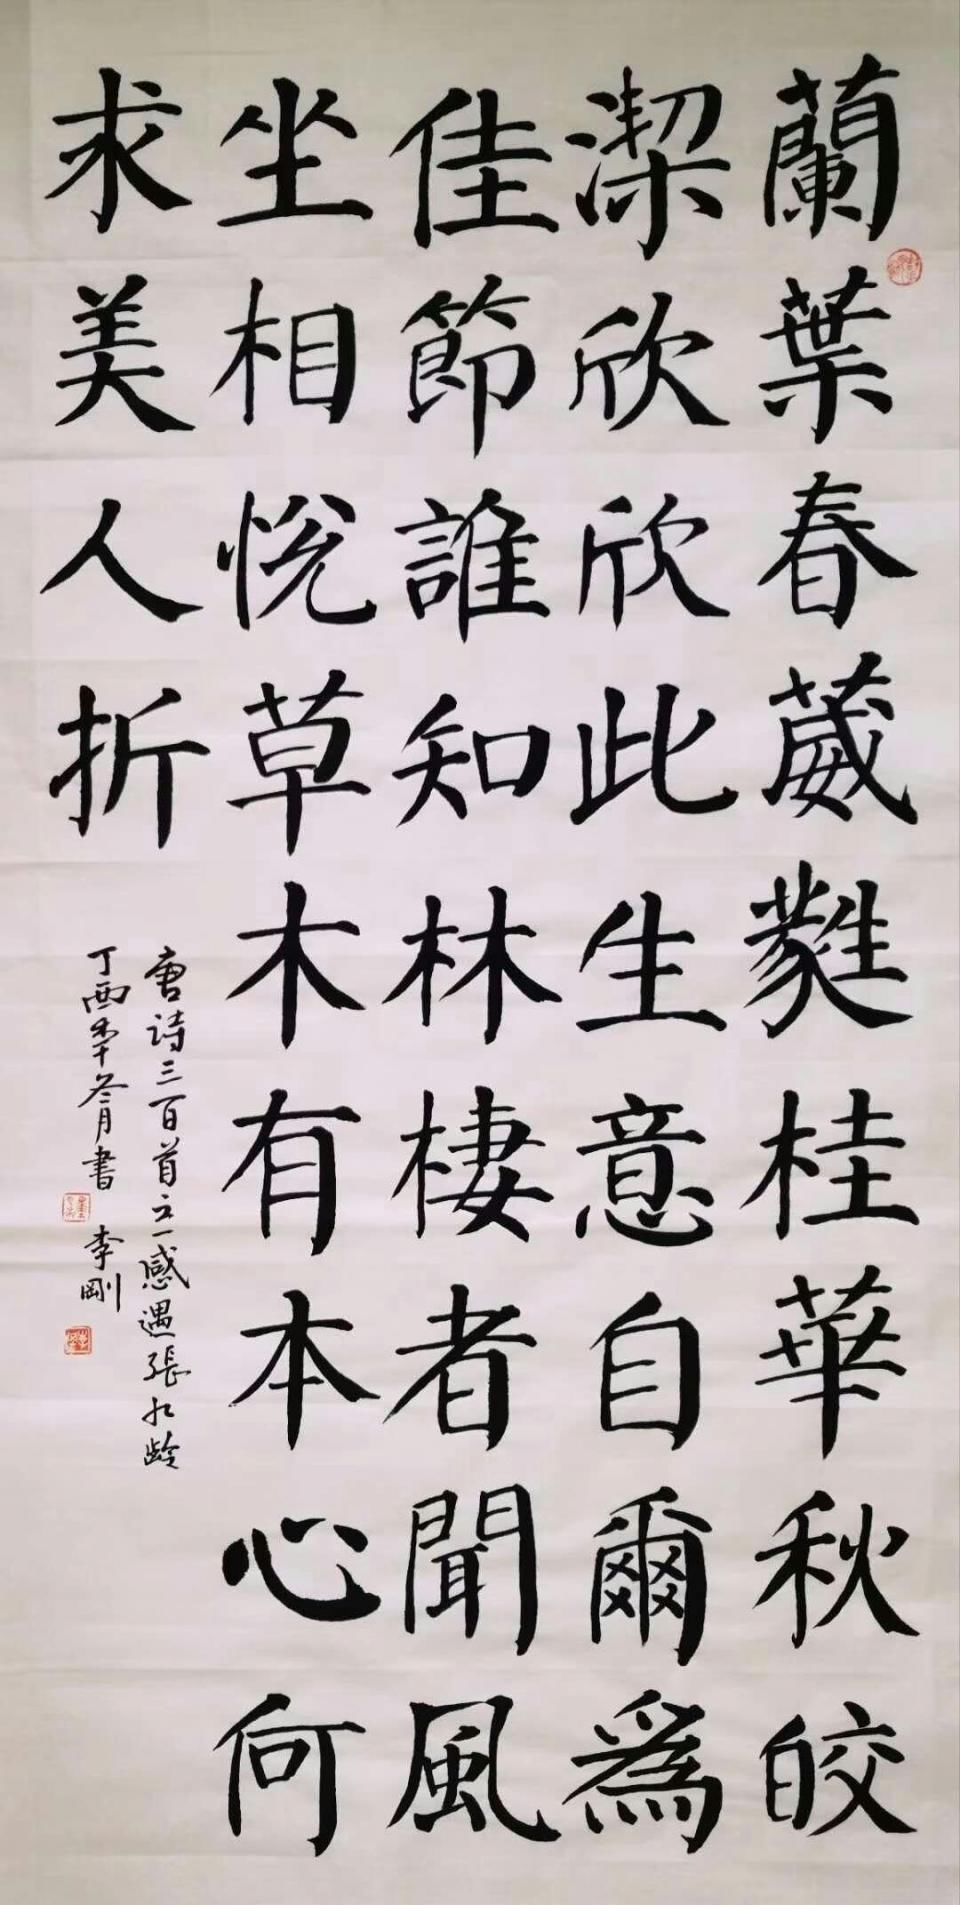 蘭葉春葳蕤桂華秋皎
潔欣欣此生意自爾為
佳節誰知林棲者聞風
坐相悅草木有本心何
求美人折
唐诗三百首之一感遇張九龄
丁酉年冬月書
李剛